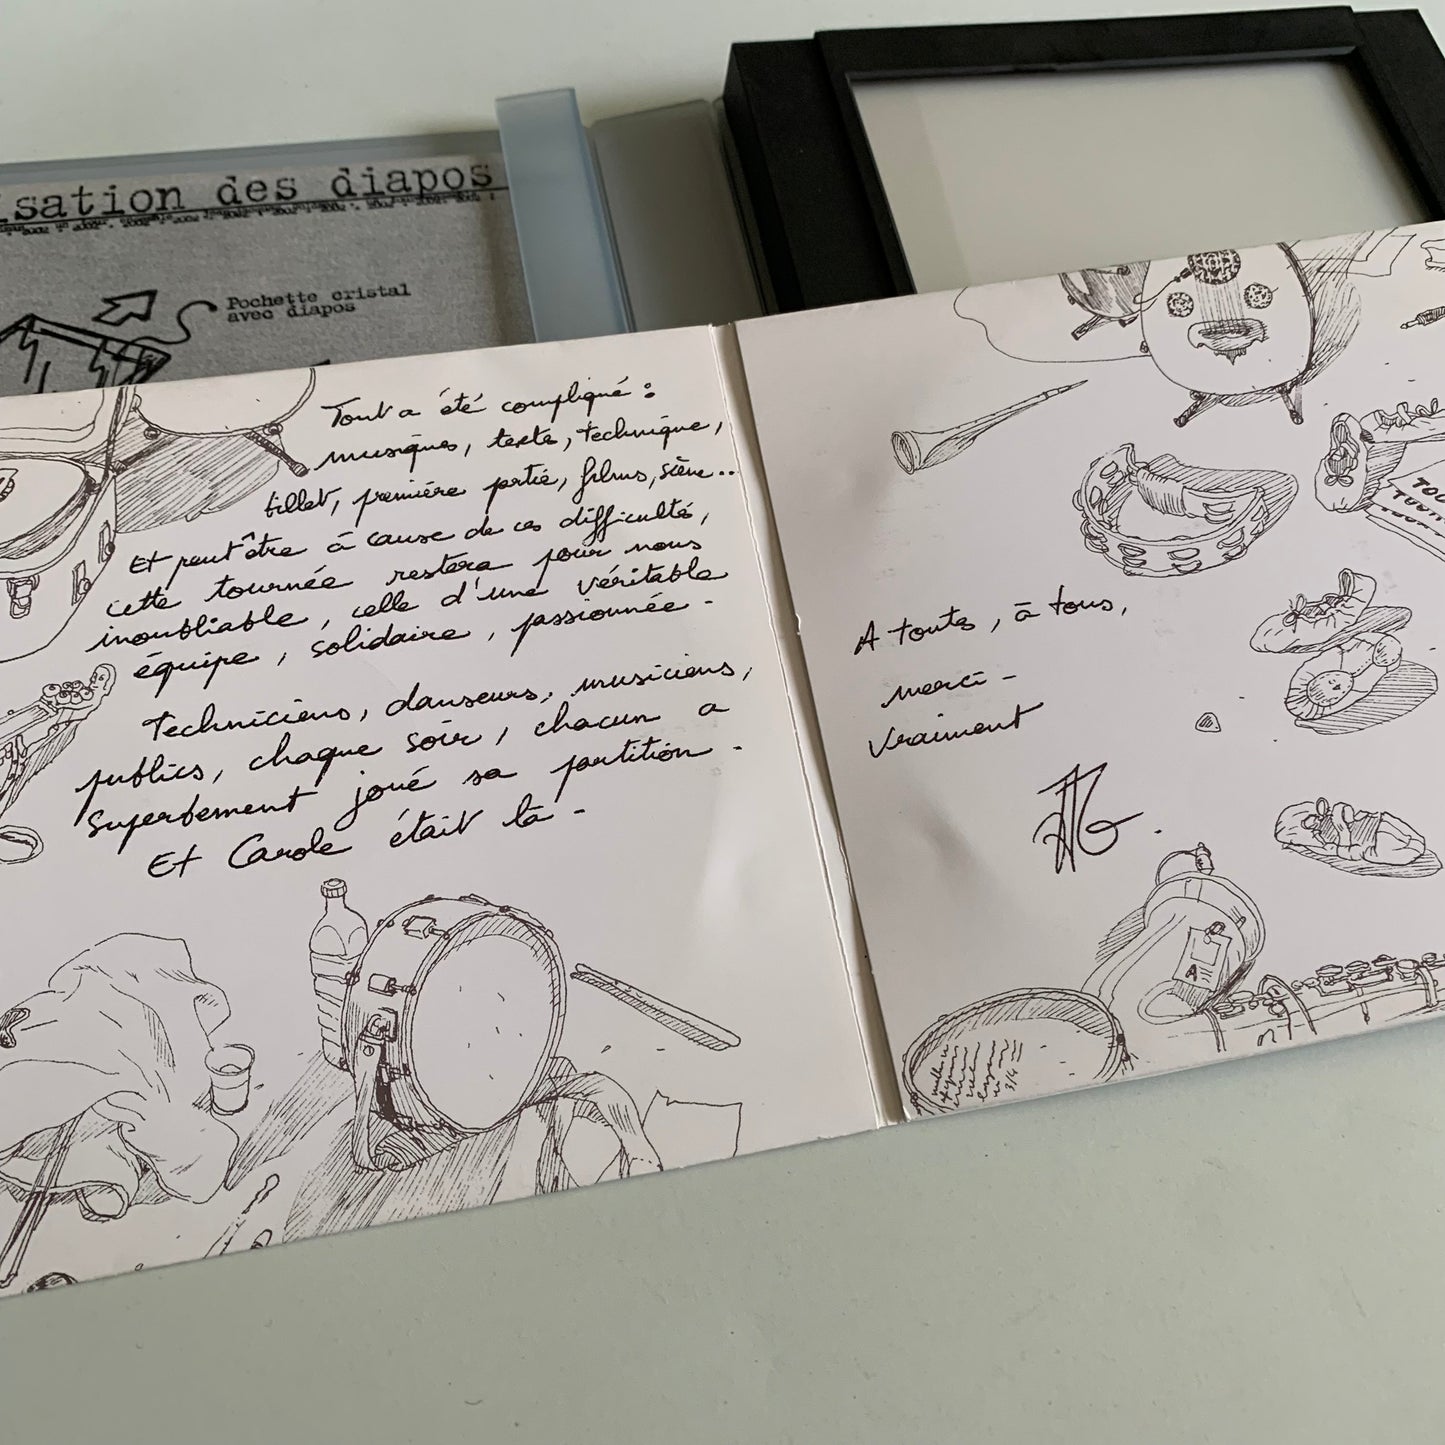 sation des diapos
Pochette cristal
avec diapos
Tout a été compliqué :
musiques, texte, technique,
billet, première partie, films, scène...
Et peut être à cause de ces difficultés,
cette tournée restera pour nous
inoubliable, celle d'une véritable
équipe, solidaire, passionnée -
Techniciens, danseurs, musiciens,
publics, chaque soir, chacun a
superbement joué sa partition -
Et Carole était là -
A toutes, à tous,
merci -
vraiment
A
3/4